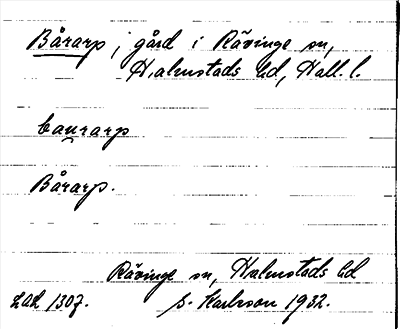 Bårarp, gård i Rävinge sn,
Halmstads hd, Hall. l.
baurarp
Bårarp.
Rävinge sn, Halmstads hd
LAL 1307. S. Karlsson 1932.